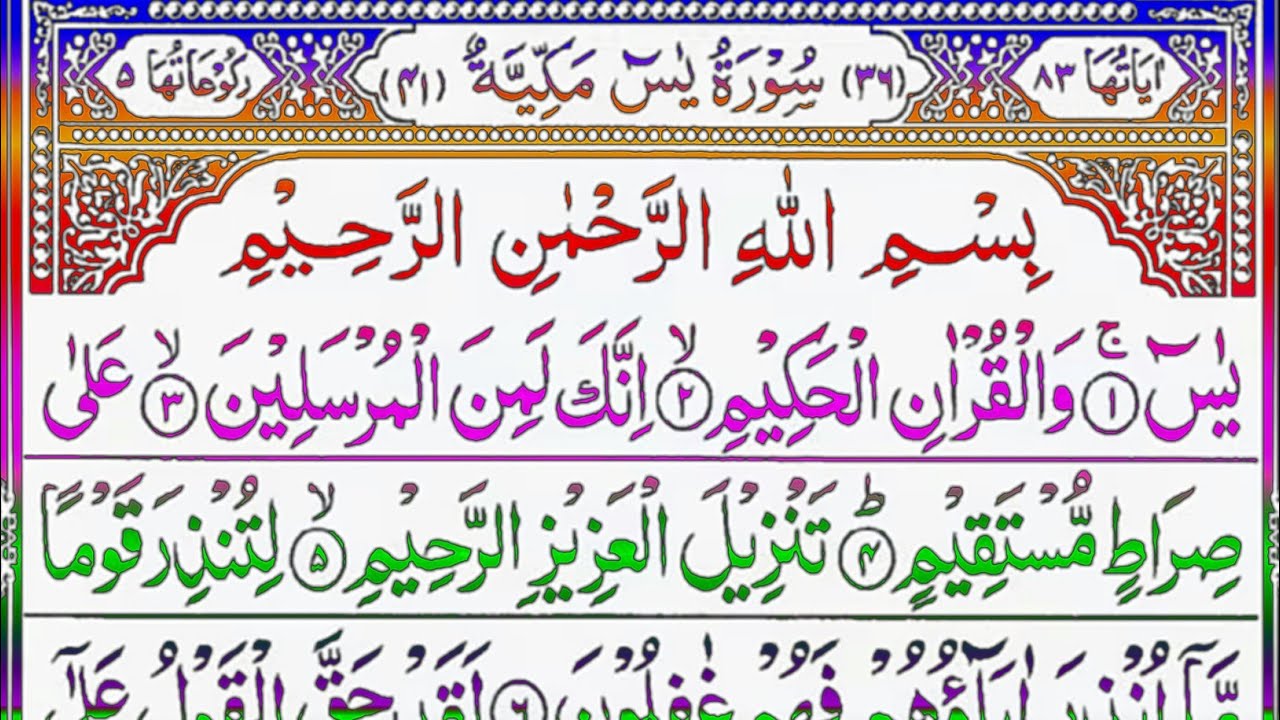 اٰیَاتُهَا ۸۳ (۳۶) سُوْرَةُ یٰسٓ مَکِّیَّةٌ (۴۱) رُکُوْعَاتُهَا ۵
بِسْمِ اللّٰهِ الرَّحْمٰنِ الرَّحِیْمِ
یٰسٓ ۚ ۱ وَالْقُرْاٰنِ الْحَکِیْمِ ۙ ۲ اِنَّكَ لَمِنَ الْمُرْسَلِیْنَ ۙ ۳ عَلٰی
صِرَاطٍ مُّسْتَقِیْمٍ ؕ ۴ تَنْزِیْلَ الْعَزِیْزِ الرَّحِیْمِ ۙ ۵ لِتُنْذِرَ قَوْمًا
مَّاۤ اُنْذِرَ اٰبَآؤُهُمْ فَهُمْ غٰفِلُوْنَ ۶ لَقَدْ حَقَّ الْقَوْلُ عَلٰۤی